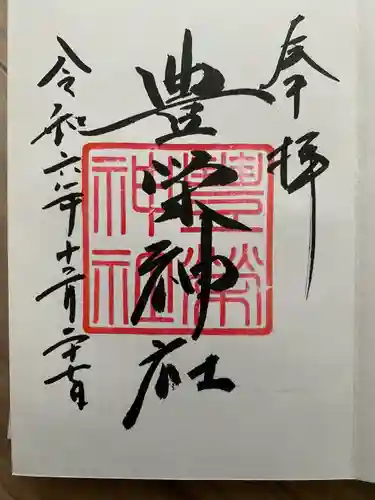 奉拝
豊栄神社
豐榮
神社
令和六年十二月